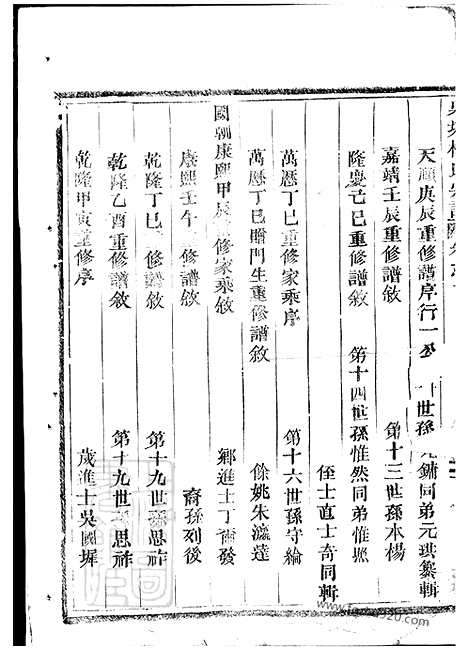 天順庚辰重修譜序行一公 世孫元鏞同弟元珙纂輯
嘉靖壬辰重修譜敘 第十三世孫本楊
隆慶己巳重修譜敘 第十四世孫惟然同弟惟㷍
侄士直士奇同輯
萬曆丁巳重修家乘序 第十六世孫守綸
萬曆丁巳贈門生重修譜敘 餘姚朱瀛達
國朝康熙甲辰 修家乘敘 鄉進士丁 發
康熙壬午 修譜敘 裔孫列後
乾隆丁巳 修譜敘 第十九世孫思祚
乾隆乙酉重修譜敘 第十九世 思祚
乾隆甲寅重修序 歲進士吳國墀